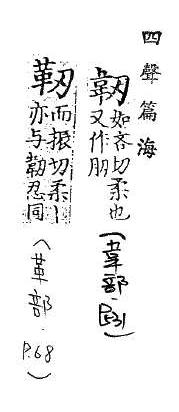 四聲篇海
韌如吝切柔也
又作肕
(韋部.P.531)
靭而振切柔〡
亦与韌忍同
(革部.P.68)